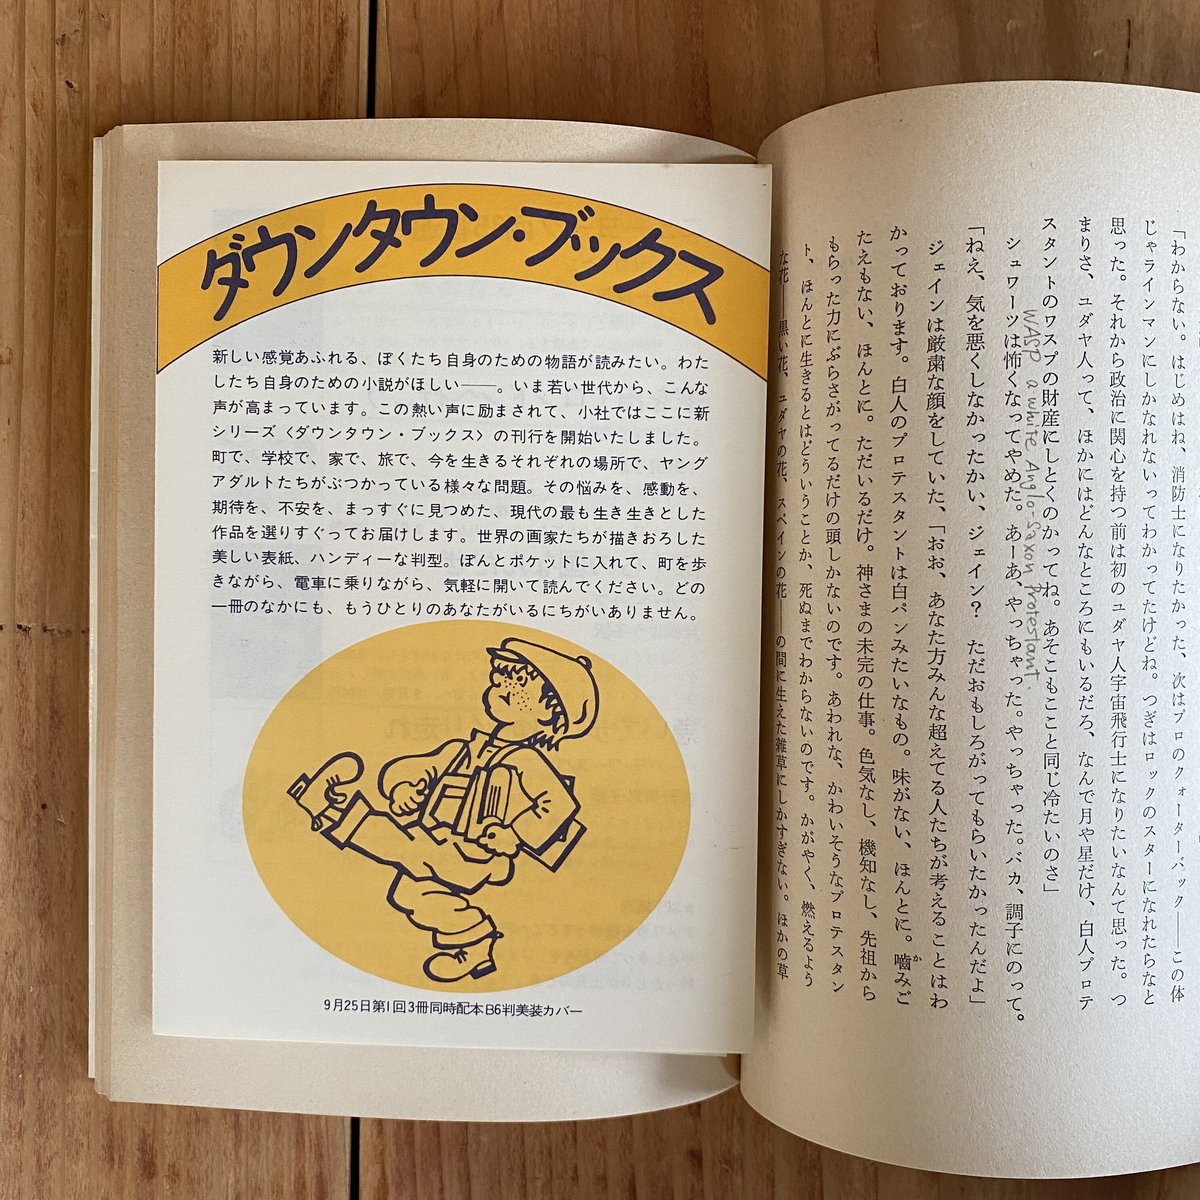 ダウンタウン・ブックス
新しい感覚あふれる、ぼくたち自身のための物語が読みたい。わた
したち自身のための小説がほしい――。いま若い世代から、こんな
声が高まっています。この熱い声に励まされて、小社ではここに新
シリーズ〈ダウンタウン・ブックス〉の刊行を開始いたしました。
町で、学校で、家で、旅で、今を生きるそれぞれの場所で、ヤング
アダルトたちがぶつかっている様々な問題。その悩みを、感動を、
期待を、不安を、まっすぐに見つめた、現代の最も生き生きとした
作品を選りすぐってお届けします。世界の画家たちが描きおろした
美しい表紙、ハンディーな判型。ぽんとポケットに入れて、町を歩
きながら、電車に乗りながら、気軽に開いて読んでください。どの
一冊のなかにも、もうひとりのあなたがいるにちがいありません。
9月25日第1回3冊同時配本B6判美装カバー
「わからない。はじめはね、消防士になりたかった、次はプロのクォーターバック――この体
じゃラインマンにしかなれないってわかってたけどね。つぎはロックのスターになれたらなと
思った。それから政治に関心を持つ前は初のユダヤ人宇宙飛行士になりたいなんて思った。つ
まりさ、ユダヤ人って、ほかにはどんなところにもいるだろ、なんで月や星だけ、白人プロテ
スタントのワスプの財産にしとくのかってね。あそこもここと同じ冷たいのさ」
WASP a white Anglo-Saxon Protestant.
シュワーツは怖くなってやめた。あーあ、やっちゃった。やっちゃった。バカ、調子にのって。
「ねえ、気を悪くしなかったかい、ジェイン？　ただおもしろがってもらいたかったんだよ」
ジェインは厳粛な顔をしていた、「おお、あなた方みんな超えてる人たちが考えることはわ
かっております。白人のプロテスタントは白パンみたいなもの。味がない、ほんとに。嚙みご
か
たえもない、ほんとに。ただいるだけ。神さまの未完の仕事。色気なし、機知なし、先祖から
もらった力にぶらさがってるだけの頭しかないのです。あわれな、かわいそうなプロテスタン
ト、ほんとに生きるとはどういうことか、死ぬまでわからないのです。かがやく、燃えるよう
な花――黒い花、ユダヤの花、スペインの花――の間に生えた雑草にしかすぎない。ほかの草